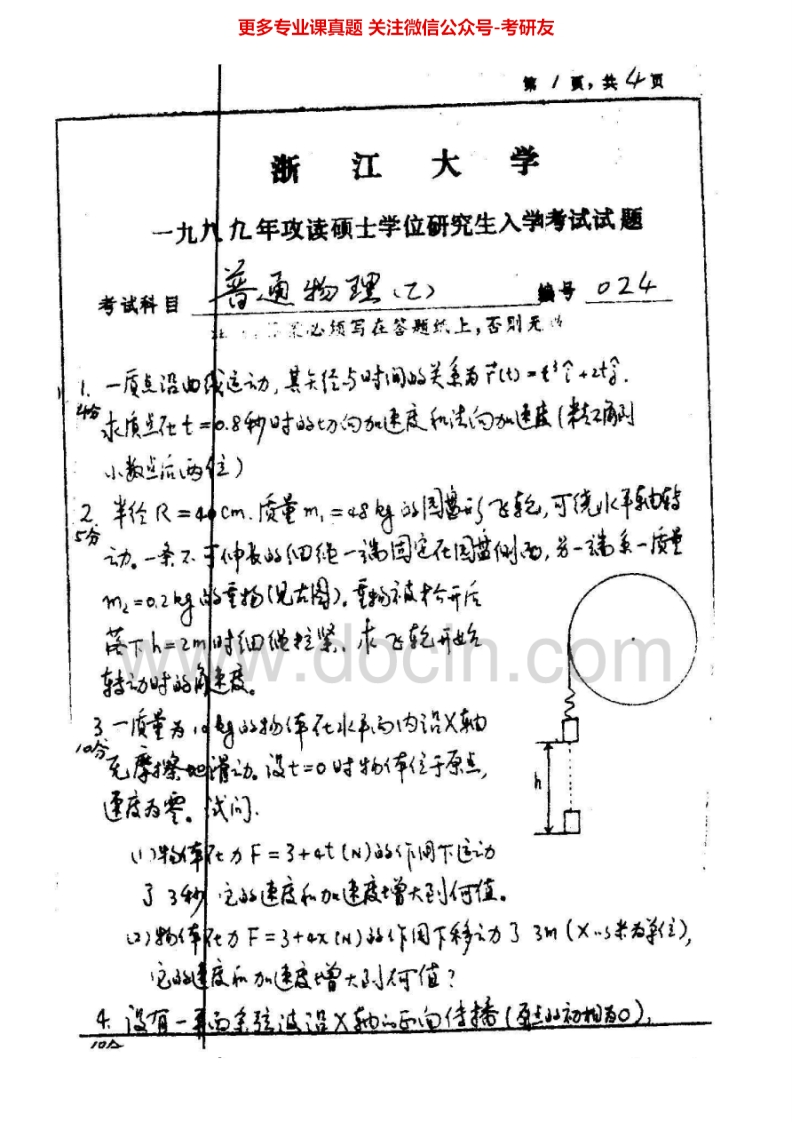 更多专业课真题 关注微信公众号-考研友
第 1 页，共 4 页
浙 江 大 学
一九九九年攻读硕士学位研究生入学考试试题
考试科目 普通物理(乙) 编号 024
答案必须写在答题纸上，否则无
1. 一质点沿曲线运动，其矢径与时间的关系为 r⃗(t) = t³î + 2tĵ.
4分
求质点在 t = 0.8 秒时的切向加速度和法向加速度（精确到
小数点后两位）
2. 半径 R = 40 cm. 质量 m₁ = 48 kg 的圆盘形飞轮，可绕水平轴转
5分
动。一条不可伸长的细绳一端固定在圆盘侧面，另一端系一质量
m₂ = 0.2 kg 的重物（见右图）。重物被松开后
落下 h = 2m 时细绳拉紧. 求飞轮开始
转动时的角速度。
h
www.docin.com
3. 一质量为 10 kg 的物体在水平面内沿 X 轴
10分
无摩擦地滑动。设 t = 0 时物体位于原点，
速度为零。试问.
(1) 物体在力 F = 3 + 4t (N) 的作用下运动
了 3秒 它的速度和加速度增大到何值。
(2) 物体在力 F = 3 + 4x (N) 的作用下移动了 3m (X 以米为单位)，
它的速度和加速度增大到何值？
4. 设有一平面余弦波沿 X 轴的正向传播（原点的初相为0），
10分